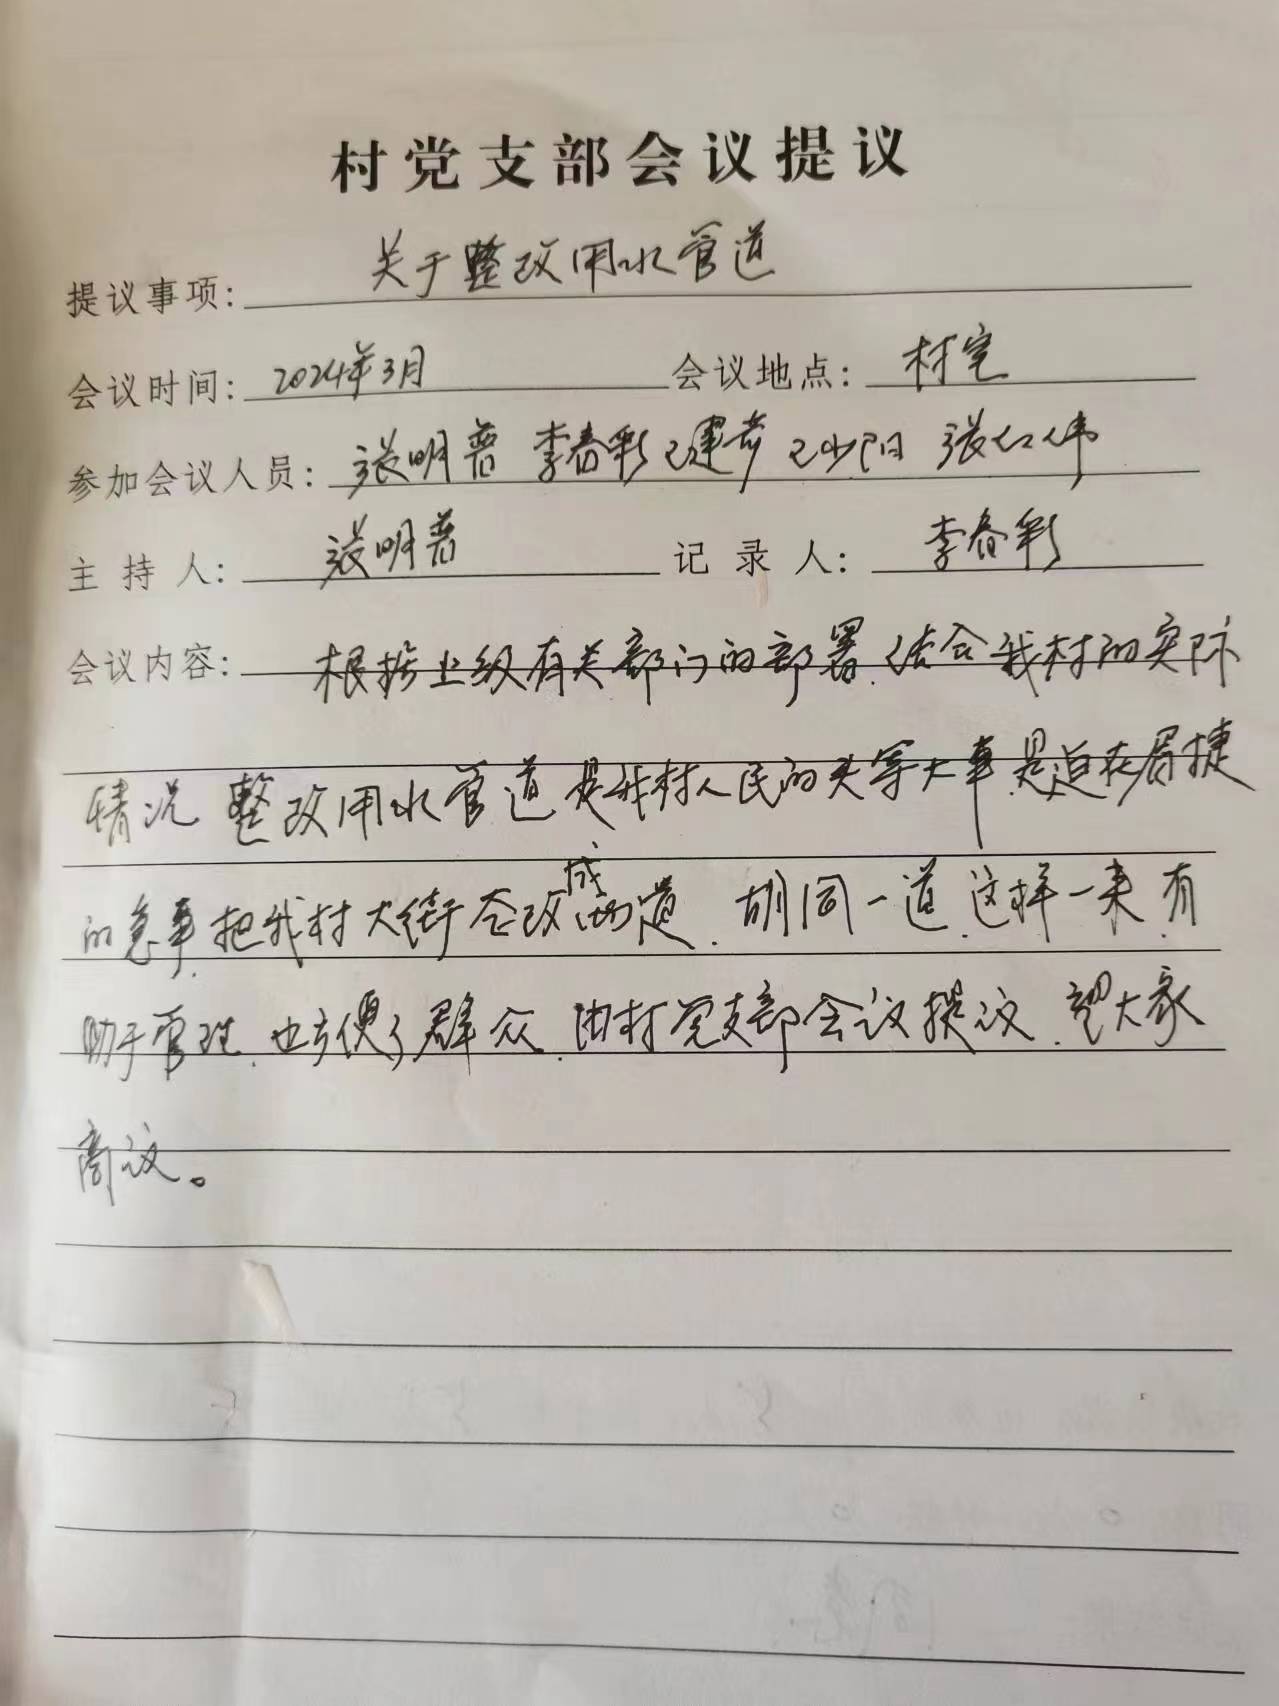 村党支部会议提议
提议事项: 关于整改用水管道
会议时间: 2024年3月 会议地点: 村室
参加会议人员: 张明普 李春彩 已建彦 已少阳 张红伟
主持人: 张明普 记录人: 李春彩
会议内容: 根据上级有关部门的部署.结合我村的实际
情况 整改用水管道是我村人民的头等大事.是迫在眉捷
的急事.把我村大街 改成两道.胡同一道.这样一来.有
助于管理.也方便了群众.由村党支部会议提议.望大家
商议。